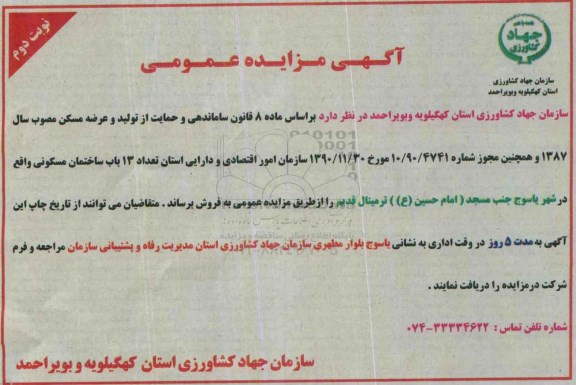 نوبت دوم
همه با هم
جهاد
کشاورزی
سازمان جهاد کشاورزی
استان کهگیلویه وبویراحمد
آگهی مزایده عمومی
سازمان جهاد کشاورزی استان کهگیلویه وبویراحمد در نظر دارد براساس ماده ۸ قانون ساماندهی و حمایت از تولید و عرضه مسکن مصوب سال
۱۳۸۷ و همچنین مجوز شماره ۱۰/۹۰/۴۷۴۱ مورخ ۱۳۹۰/۱۱/۳۰ سازمان امور اقتصادی و دارایی استان تعداد ۱۳ باب ساختمان مسکونی واقع
در شهر یاسوج جنب مسجد ( امام حسین (ع) ) ترمینال قدیم را ازطریق مزایده عمومی به فروش برساند . متقاضیان می توانند از تاریخ چاپ این
آگهی به مدت ۵ روز در وقت اداری به نشانی یاسوج بلوار مطهری سازمان جهاد کشاورزی استان مدیریت رفاه و پشتیبانی سازمان مراجعه و فرم
شرکت درمزایده را دریافت نمایند .
شماره تلفن تماس : ۳۳۳۳۴۶۲۲-۰۷۴
سازمان جهاد کشاورزی استان کهگیلویه و بویر احمد